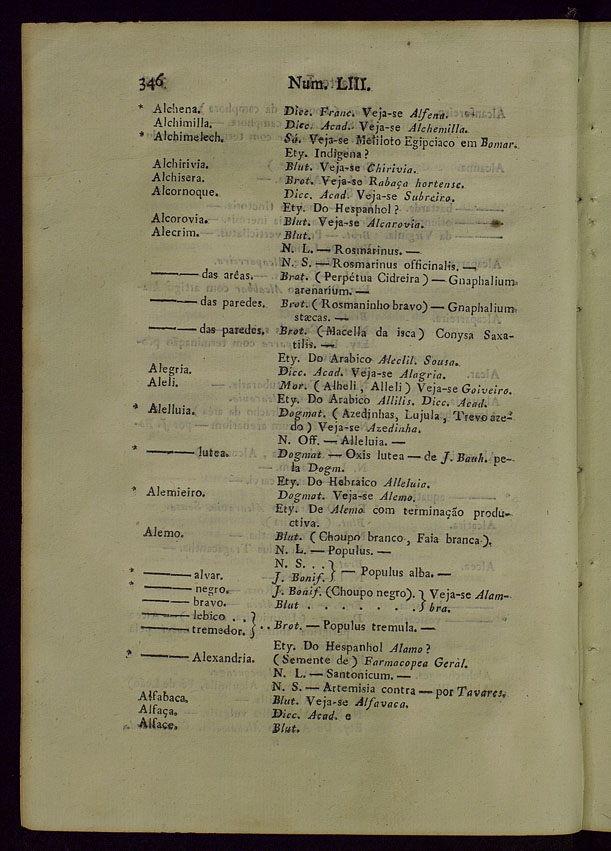 346 Num. LIII.
* Alchena. Dicc. Franc. Veja-se Alfena.
Alchimilla. Dicc. Acad. Veja-se Alchemilla.
* Alchimelech. Sá. Veja-se Meliloto Egipciaco em Bomar.
Ety. Indigena?
Alchirivia. Blut. Veja-se Chirivia.
Alchisera. Brot. Veja-se Rabaça hortense.
Alcornoque. Dicc. Acad. Veja-se Subreiro.
Ety. Do Hespanhol?
Alcorovia. Blut. Veja-se Alcarovia.
Alecrim. Blut.
N. L. — Rosmarinus. —
N. S. — Rosmarinus officinalis. —
——— das arêas. Brot. (Perpétua Cidreira) — Gnaphalium
arenarium. —
——— das paredes. Brot. (Rosmaninho bravo) — Gnaphalium
stæcas. —
——— das paredes. Brot. (Macella da isca) Conysa Saxa-
tilis. —
Ety. Do Arabico Aleclil. Sousa.
Alegria. Dicc. Acad. Veja-se Alagria.
Aleli. Mor. (Alheli, Alleli) Veja-se Goiveiro.
Ety. Do Arabico Allilis. Dicc. Acad.
* Alelluia. Dogmat. (Azedinhas, Lujula, Trevo aze-
do) Veja-se Azedinha.
N. Off. — Alleluia. —
* ——— lutea. Dogmat — Oxis lutea — de J. Bauh. pe-
la Dogm.
Ety. Do Hebraico Alleluia.
* Alemieiro. Dogmat. Veja-se Alemo.
Ety. De Alemo com terminação produ-
ctiva.
Alemo. Blut. (Choupo branco, Faia branca).
N. L. — Populus. —
N. S. . . }
* ——— alvar. J. Bonif. } — Populus alba. —
* ——— negro. J. Bonif. (Choupo negro). } Veja-se Alam-
——— bravo. Blut . . . . . . . } bra.
——— lebico . . }
——— tremedor. } . . Brot. — Populus tremula. —
Ety. Do Hespanhol Alamo?
* ——— Alexandria. (Semente de) Farmacopea Geral.
N. L. — Santonicum. —
N. S. — Artemisia contra — por Tavares.
Alfabaca. Blut. Veja-se Alfavaca.
Alfaça. Dicc. Acad. e
Alface. Blut.